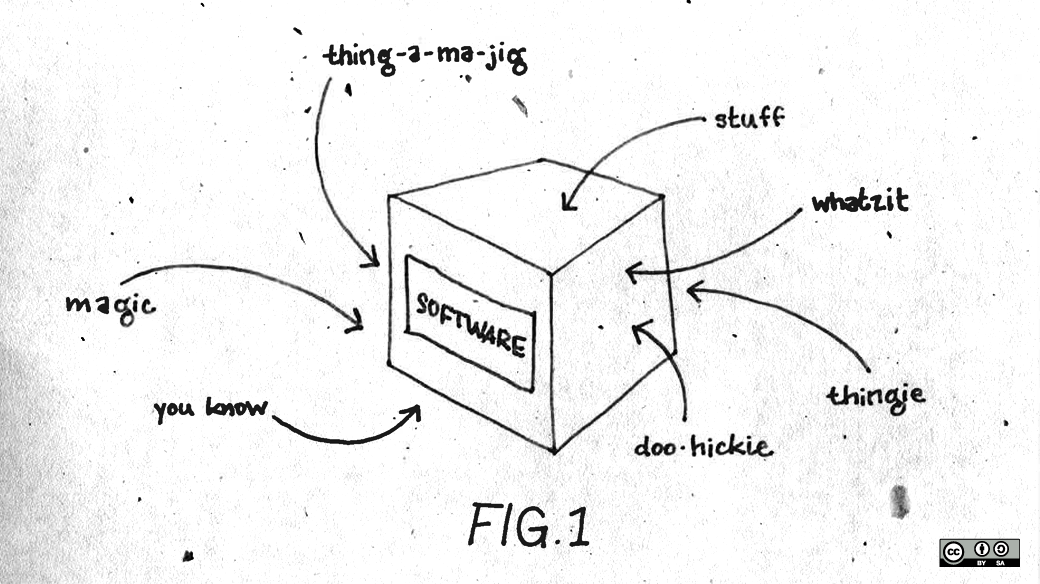 thing-a-ma-jig
stuff
whatzit
magic
SOFTWARE
thingie
you know
doo-hickie
FIG.1
cc
BY SA